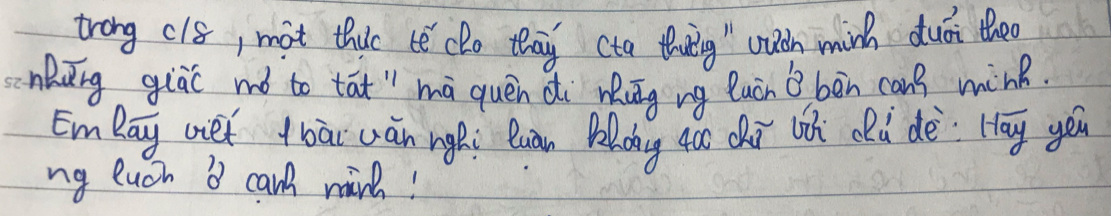 trong c/s, một thực tế cho thấy cta thường " vươn mình đuổi theo
những giấc mơ to tát " mà quên đi những ng luôn ở bên cạnh mình.
Em hãy viết 1 bài văn nghị luận khoảng 400 chữ với chủ đề: Hãy yêu
ng luôn ở cạnh mình!